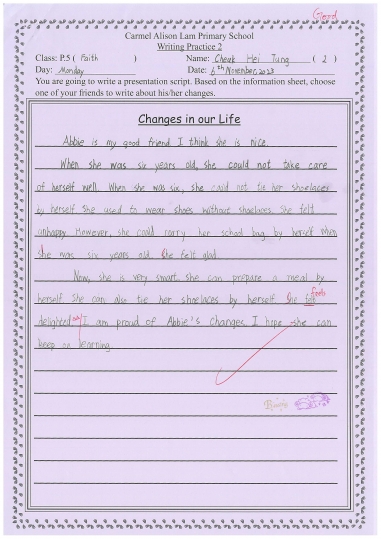 Good
Carmel Alison Lam Primary School
Writing Practice 2
Class: P.5 ( Faith )
Name: Cheuk Hei Tung ( 2 )
Day: Monday
Date: 6th November, 2023
You are going to write a presentation script. Based on the information sheet, choose
one of your friends to write about his/her changes.
Changes in our Life
Abbie is my good friend I think she is nice.
When she was six years old, she could not take care
of herself well. When she was six, she could not tie her shoelaces
by herself She used to wear shoes without shoelaces. She felt
unhappy. However, she could carry her school bag by herself when
she was six years old. She felt glad.
Now, she is very smart. she can prepare a meal by
herself. She can also tie her shoelaces by herself. She felt
feels
delighted I am proud of Abbie's Changes. I hope she can
keep on learning.